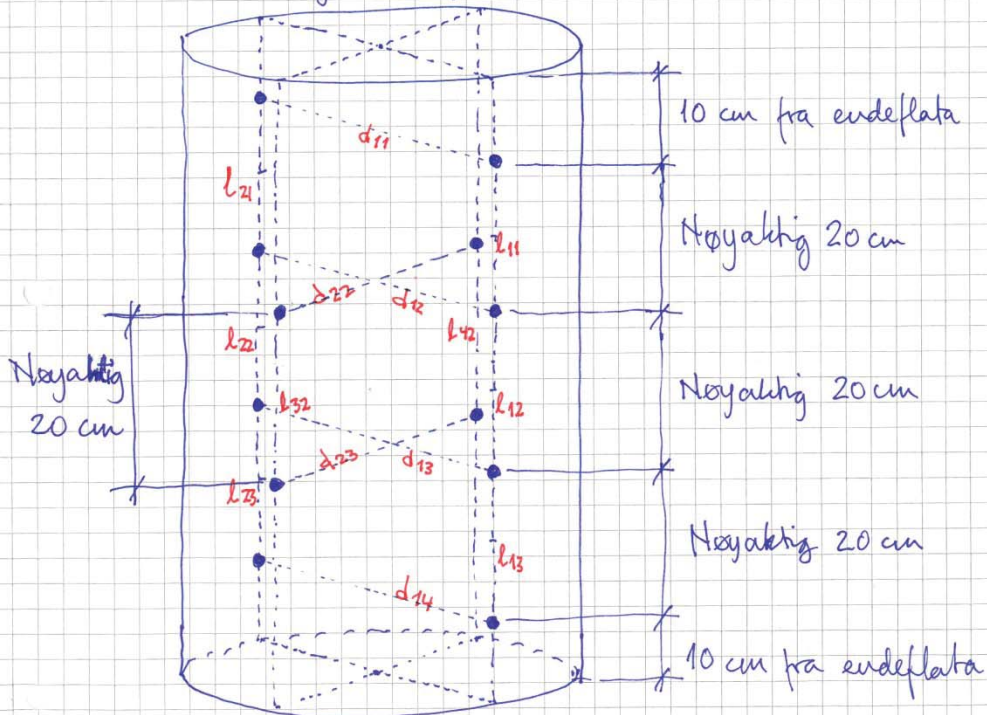 10 cm fra endeflata
d11
l21
Nøyaktig 20 cm
l11
d22
d12
l22
l42
Nøyaktig
20 cm
l32
l12
Nøyaktig 20 cm
d23
d13
l23
Nøyaktig 20 cm
l13
d14
10 cm fra endeflata